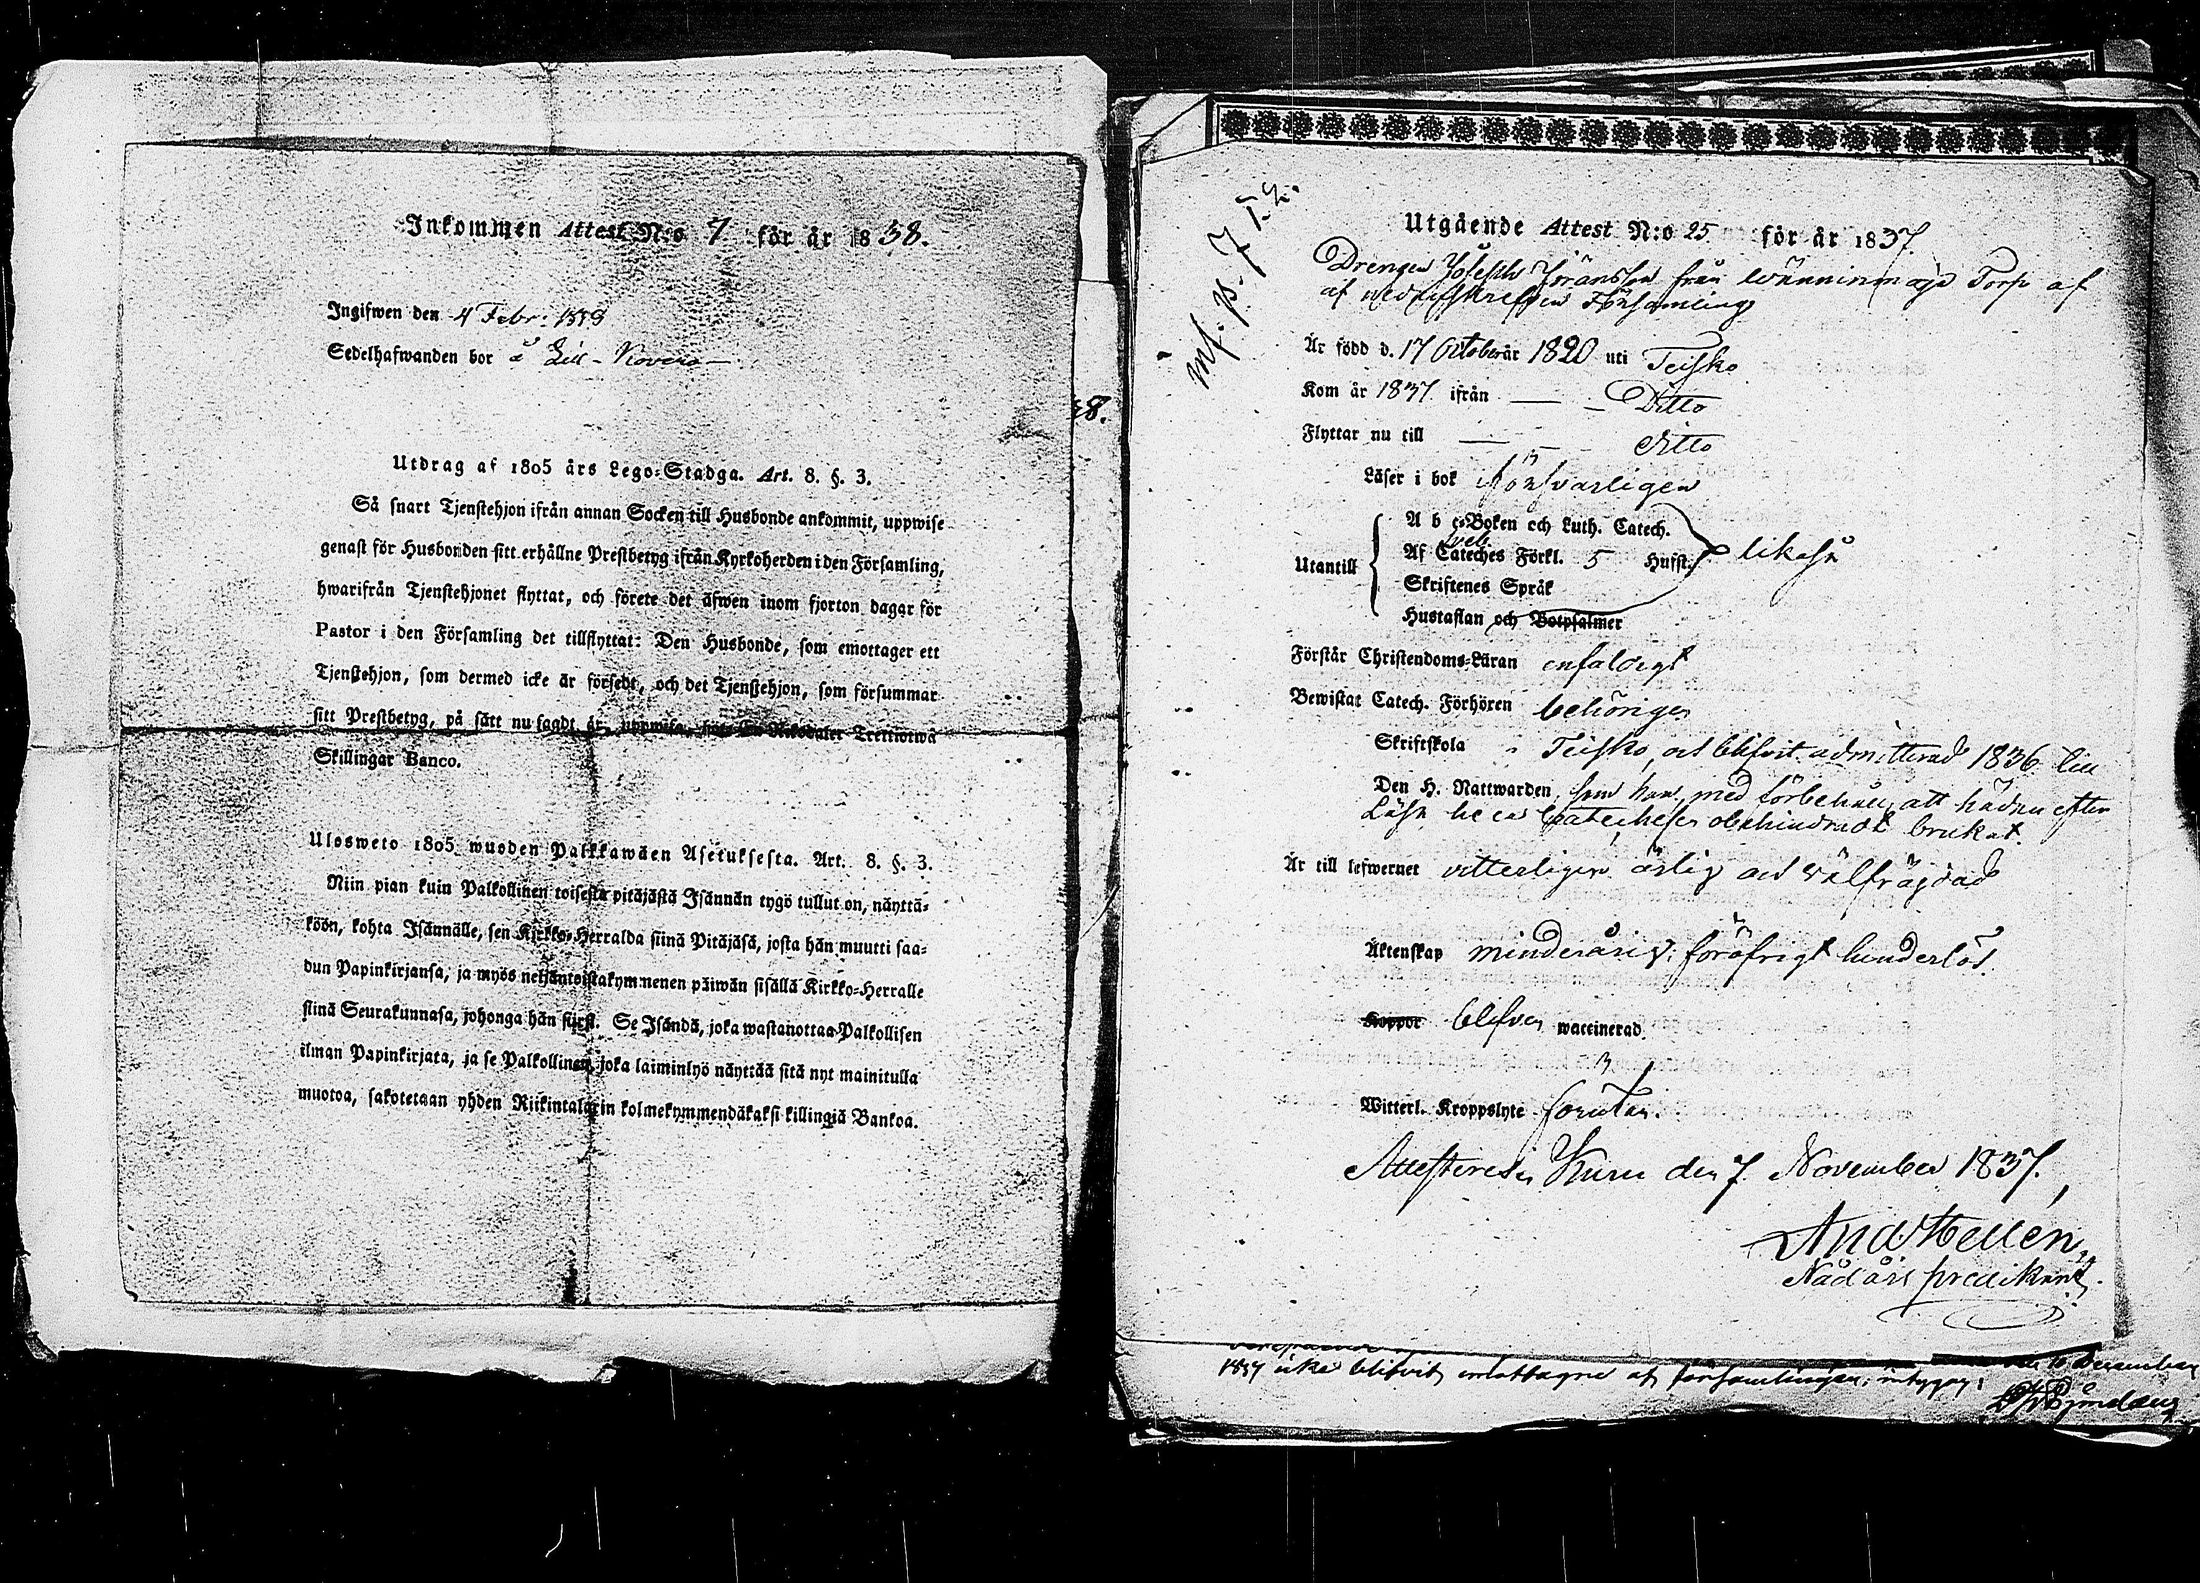 Inkommen Attest N:o 7. för år 1838.
Ingifwen den 4 Febr: 1838
Sedelhafwanden bor å Lill-Rovero
Utdrag af 1805 års Lego-Stadga. Art. 8. §. 3.
Så snart Tjenstehjon ifrån annan Socken till Husbonde ankommit, uppwise
genast för Husbonden sitt erhållne Prestbetyg ifrån Kyrkoherden i den Församling,
hwarifrån Tjenstehjonet flyttat, och förete det äfwen inom fjorton dagar för
Pastor i den Församling det tillflyttat: Den Husbonde, som emottager ett
Tjenstehjon, som dermed icke är försedt, och det Tjenstehjon, som försummar
sitt Prestbetyg, på sätt nu sagdt är, uppwisa, böte En Riksdaler Trettiotwå
Skillingar Banco.
Ulosweto 1805 wuoden Palkkawäen Asetuksesta. Art. 8. §. 3.
Niin pian kuin Palkollinen toisesta pitäjästä Isännän tygö tullut on, näyttä-
köön, kohta Isännälle, sen Kirkko-Herralda siinä Pitäjäsä, josta hän muutti saa-
dun Papinkirjansa, ja myös neljäntoistakymmenen päiwän sisällä Kirkko-Herralle
siinä Seurakunnasa, johonga hän siirsi. Se Isändä, joka wastanottaa Palkollisen
ilman Papinkirjata, ja se Palkollinen, joka laiminlyö näyttää sitä nyt mainitulla
muotoa, sakotetaan yhden Riikintalarin kolmekymmendäkaksi killingiä Bankoa.
8.
inf. p. 7
Utgående Attest N:o 25 för år 1837
Drengen Joseph Jöransson från Torp af
af Församling
Är född d. 17 October år 1820 uti Teisko
Kom år 1837 ifrån — — Ditto
Flyttar nu till — — ditto
Läser i bok försvarligen
Utantill
A b c-Boken och Luth. Catech.
Sveb.
Af Cateches Förkl. 5 Hufst.
likaså
Skriftenes Språk
Hustaflan och Botpsalmer
Förstår Christendoms-Läran enfaldigt
Bewistat Catech. Förhören behörigen
Skriftskola i Teisko, och blifvit admitterad 1836 till
Den H. Nattwarden, som han med förbehåll att hädan efter
Läsa hela Catechesen obehindradt brukat.
Är till lefwernet vitterligen ärlig och välfrägdad
Äktenskap minderårig: föröfrigt hinderlös
Koppor blifven waccinerad.
Witterl. Kroppslyte förutan.
Attesteras i Kuru den 7. November 1837.
And Hellén
Nådårs predikant.
1837 icke blifvit emottagne af församlingen, intygar: